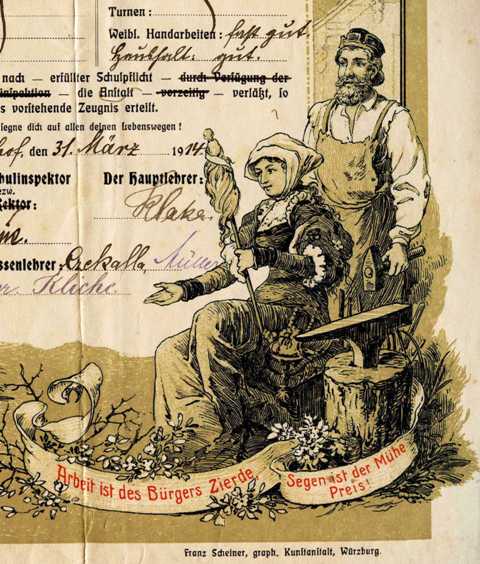 Turnen:
Weibl. Handarbeiten: fast gut.
Haushalt: gut.
nach — erfüllter Schulpflicht — durch Verfügung der
— die Anstalt — vorzeitig — verläßt, so
vorstehende Zeugnis erteilt.
segne dich auf allen deinen Lebenswegen!
hof, den 31. März 1914
Schulinspektor
bezw.
Rektor:
Der Hauptlehrer:
Klassenlehrer: Müller
Kliche
Arbeit ist des Bürgers Zierde,
Segen ist der Mühe
Preis!
Franz Scheiner, graph. Kunstanstalt, Würzburg.